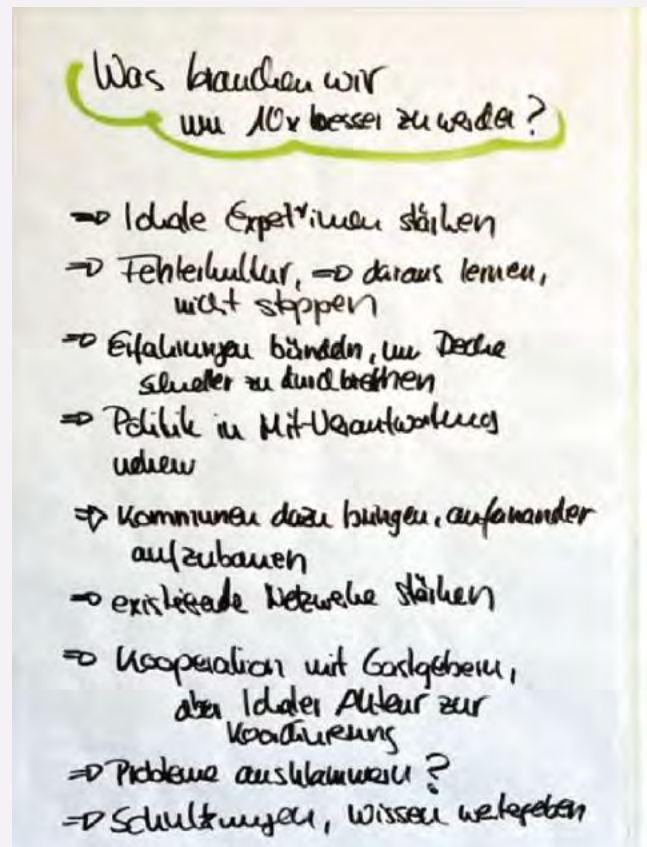 Was brauchen wir
um 10x besser zu werden?
⇒ lokale Experimen stärken
⇒ Fehlerkultur, ⇒ daraus lernen,
nicht stoppen
⇒ Erfahrungen bündeln, um Decke
schneller zu durchbrechen
⇒ Politik in Mit-Verantwortung
nehmen
⇒ Kommunen dazu bringen, aufeinander
aufzubauen
⇒ existierende Netzwerke stärken
⇒ Kooperation mit Gastgebern,
aber lokaler Akteur zur
Koordinierung
⇒ Probleme ausklammern?
⇒ Schulungen, Wissen weitergeben